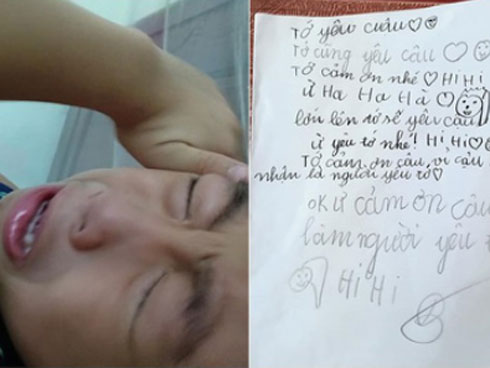 Tớ yêu cậu♡☺
Tớ cũng yêu cậu ♡☺
Tớ cảm ơn nhé ♡ HiHi
Ừ Ha Ha Hà ♡
lớn lên tớ sẽ yêu cậu
Ừ yêu tớ nhé! HiHi♡☺
Tớ cảm ơn cậu vì cậu
nhận là người yêu tớ♡
OK Ừ cảm ơn cậu
làm người yêu
Hi Hi